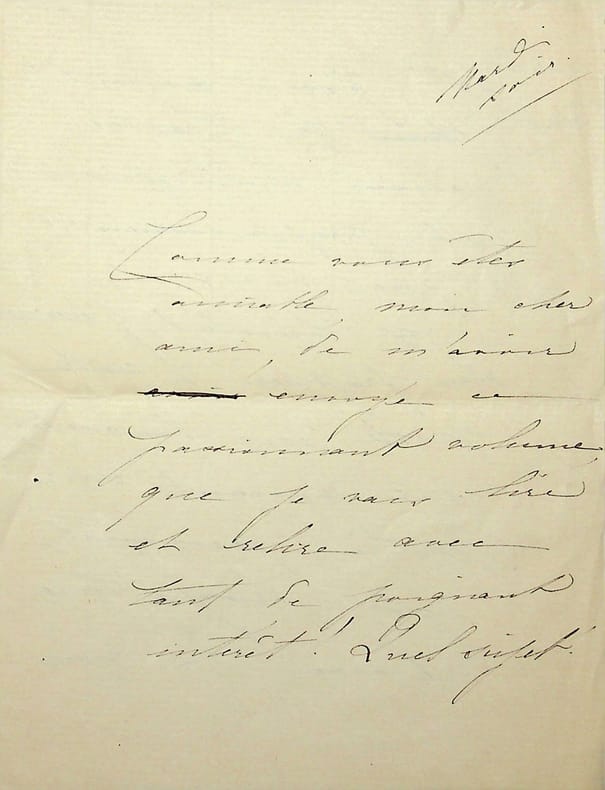 Mardi
soir.
Comme vous êtes
aimable, mon cher
ami, de m'avoir
envoyé ce
passionnant volume,
que je vais lire
et relire avec
tant de poignant
intérêt! Quel sujet!